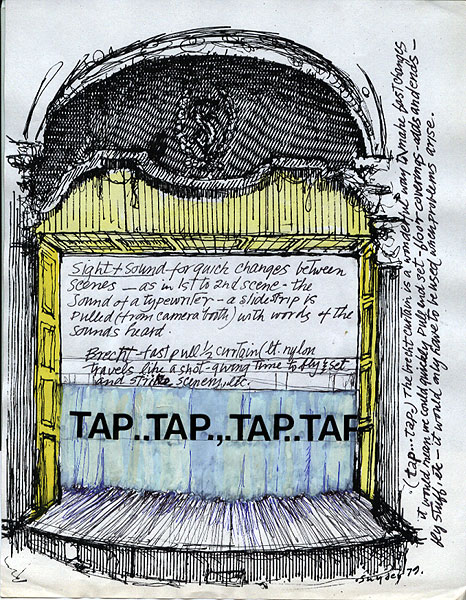 Sight + Sound - for quick changes between
scenes — as in 1st to 2nd scene - the
Sound of a typewriter - a slide strip is
Pulled (from camera booth) with words of the
sounds heard.
Brecht - fast pull ½ curtain (lt. nylon
travels like a shot - giving time to fly & set
and strike scenery, etc.
TAP..TAP.,.TAP..TAP
(tap...tap) The brecht curtain is a wonderful way to make fast changes
it would mean we could quickly pull floor coverings - odds and ends -
fly stuff, etc - it would only have to be used when problems arise.